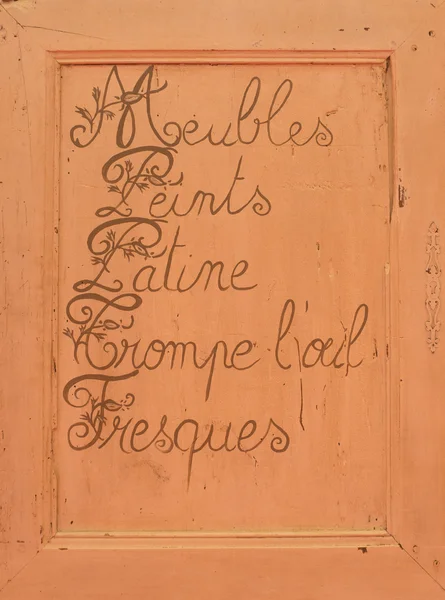 Meubles
Peints
Patine
Trompe l'œil
Fresques